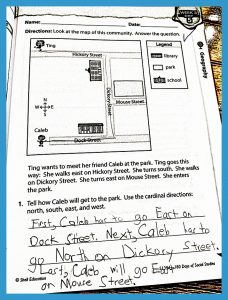 Name: Date:
Directions: Look at the map of this community. Answer the question.
WEEK
Geography
Ting
Hickory Street
Legend
library
park
school
Dickory Street
Mouse Street
N
W E
S
Caleb
Dock Street
Ting wants to meet her friend Caleb at the park. Ting goes this
way: She walks east on Hickory Street. She turns south. She walks
on Dickory Street. She turns east on Mouse Street. She enters
the park.
1. Tell how Caleb will get to the park. Use the cardinal directions:
north, south, east, and west.
First, Caleb has to go East on
Dock Street. Next, Caleb has to
go North on Dickory Street.
Last, Caleb will go East
on Mouse Street.
© Shell Education 180 Days of Social Studies